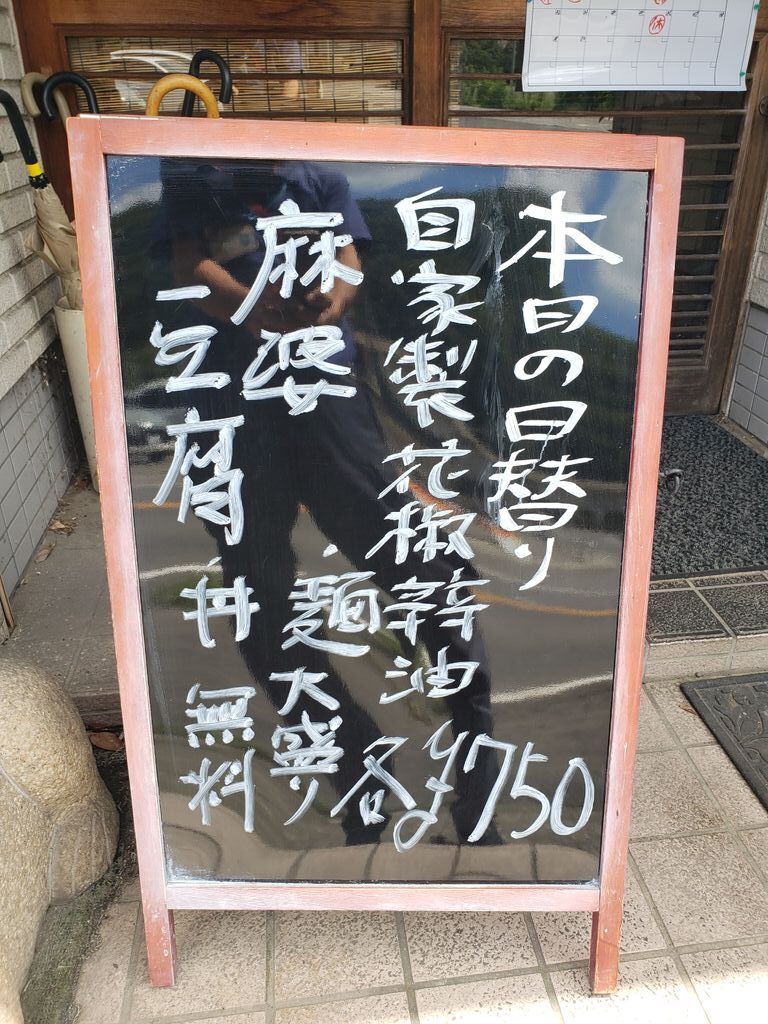 本日の日替り
自家製花椒辣油
麻婆・麺
豆腐丼
各¥750
大盛り無料
休